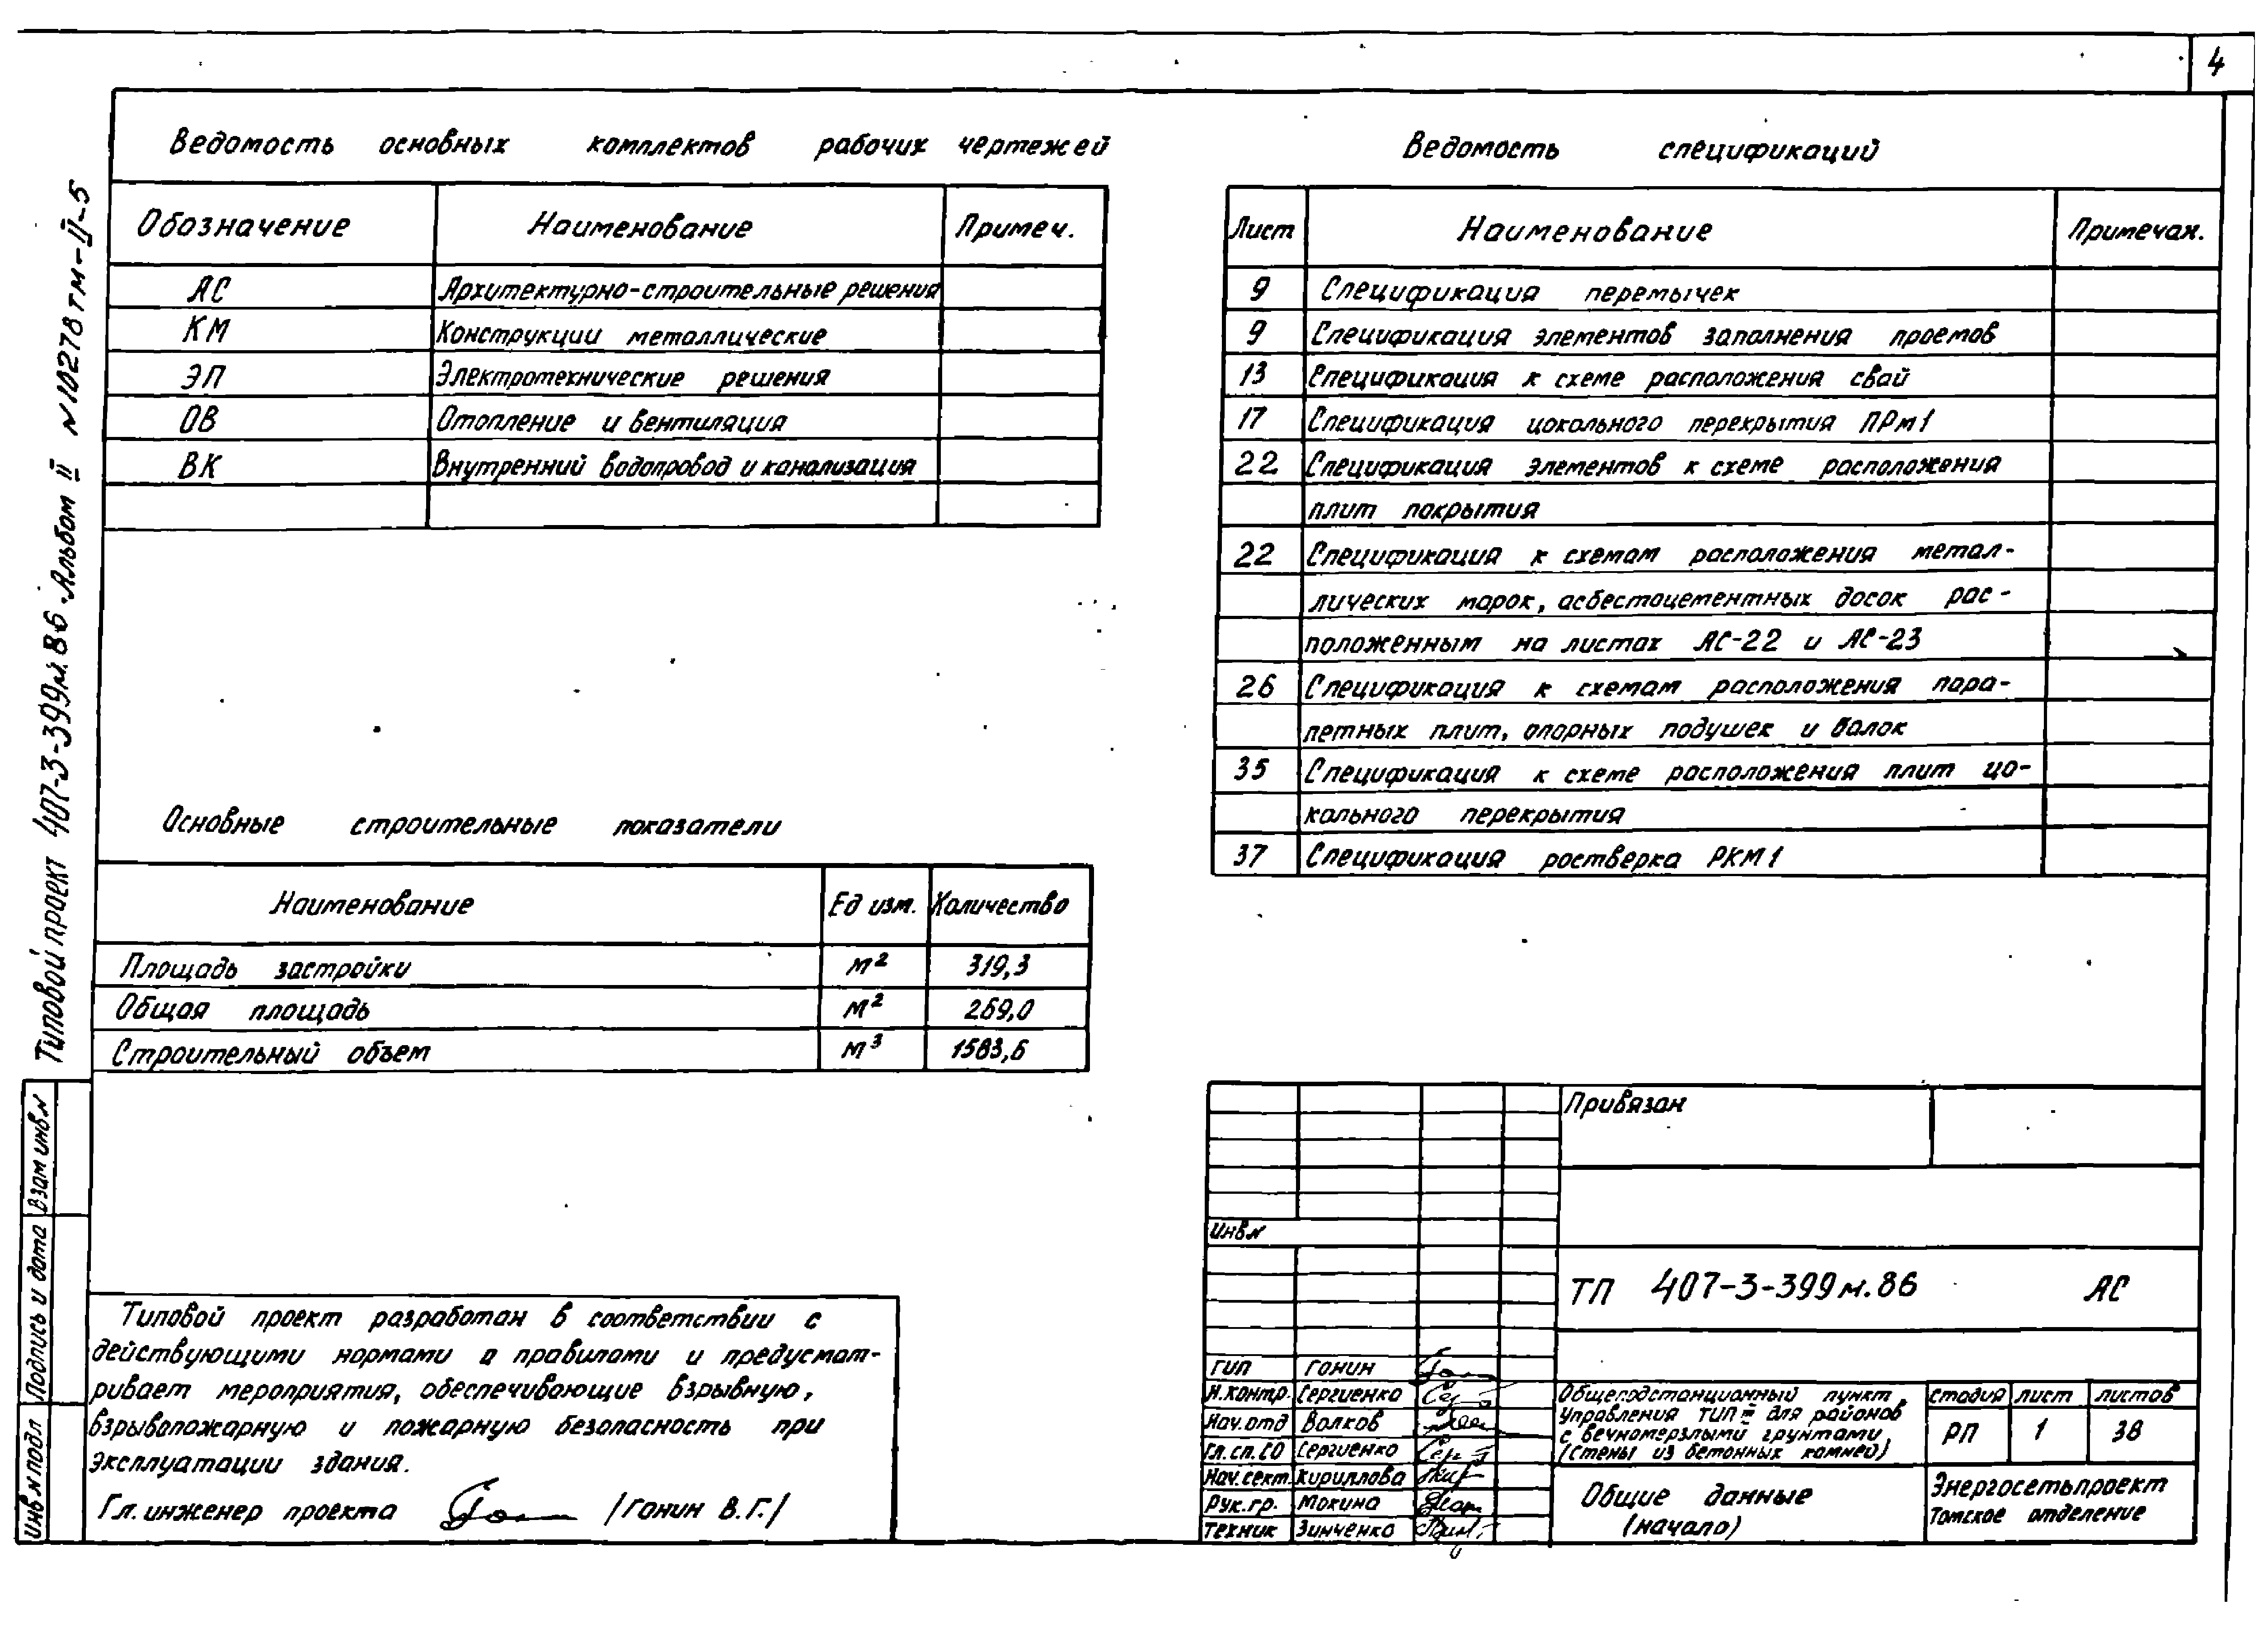 4
Типовой проект 407-3-399м.86. Альбом II N10278тм-II-5
Ведомость основных комплектов рабочих чертежей
Обозначение Наименование Примеч.
АС Архитектурно-строительные решения
КМ Конструкции металлические
ЭП Электротехнические решения
ОВ Отопление и вентиляция
ВК Внутренний водопровод и канализация
Основные строительные показатели
Наименование Ед изм. Количество
Площадь застройки м² 319,3
Общая площадь м² 269,0
Строительный объем м³ 1583,6
Типовой проект разработан в соответствии с
действующими нормами и правилами и предусмат-
ривает мероприятия, обеспечивающие взрывную,
взрывопожарную и пожарную безопасность при
эксплуатации здания.
Гл. инженер проекта /Гонин В.Г./
Взам инв N
Подпись и дата
Инв N подл
Ведомость спецификаций
Лист Наименование Примечан.
9 Спецификация перемычек
9 Спецификация элементов заполнения проемов
13 Спецификация к схеме расположения свай
17 Спецификация цокольного перекрытия ПРм1
22 Спецификация элементов к схеме расположения
плит покрытия
22 Спецификация к схемам расположения метал-
лических марок, асбестоцементных досок рас-
положенным на листах АС-22 и АС-23
26 Спецификация к схемам расположения пара-
петных плит, опорных подушек и балок
35 Спецификация к схеме расположения плит цо-
кольного перекрытия
37 Спецификация ростверка РКМ1
Привязан
Инв N
ТП 407-3-399м.86 АС
ГИП Гонин
Н.контр. Сергиенко
Нач.отд Волков
Гл.сп.СО Сергиенко
Нач.сект. Кириллова
Рук.гр. Мокина
Техник Зинченко
Общеподстанционный пункт
управления тип III для районов
с вечномерзлыми грунтами,
(Стены из бетонных камней)
Стадия Лист Листов
РП 1 38
Общие данные
(начало)
Энергосетьпроект
Томское отделение